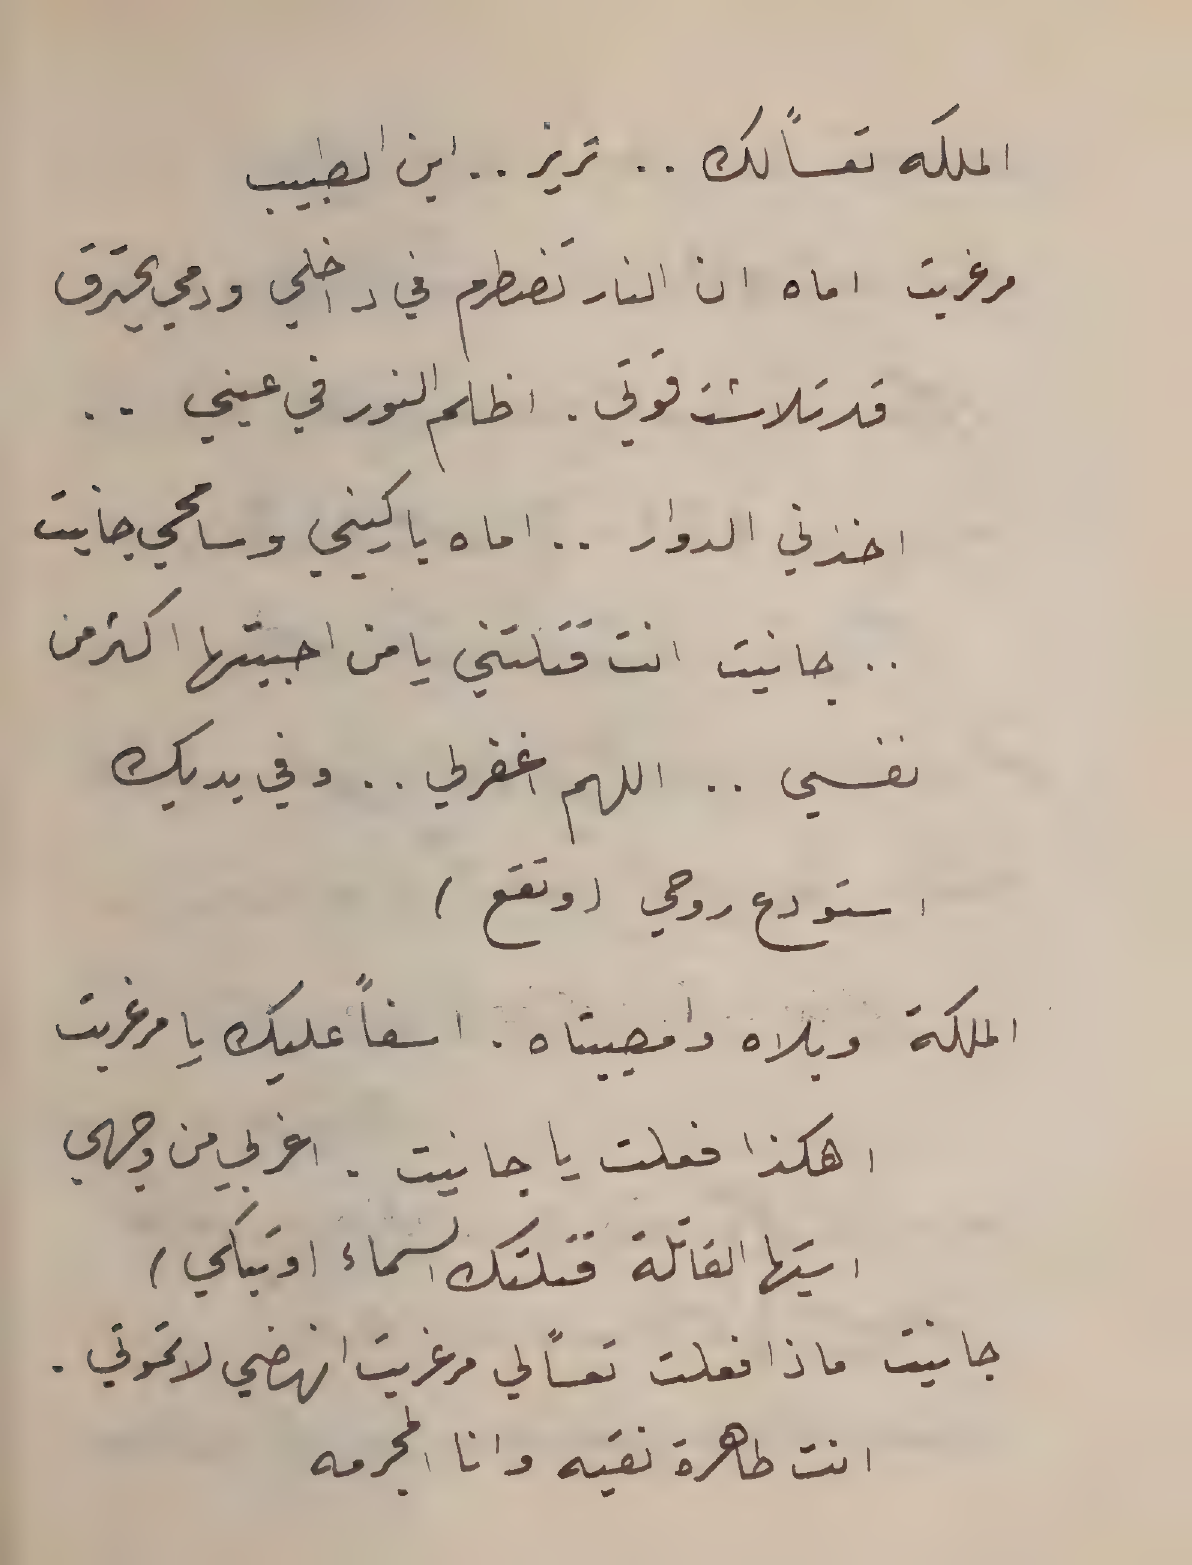 الملكه تعساً لك .. تريز .. اين الطبيب
مرغريت اماه ان النار تضطرم في داخلي ودمي يحترق
قد تلاشت قوتي . اظلم النور في عيني ..
اخذني الدوار .. اماه باركيني وسامحي جانيت
.. جانيت انت قتلتني يا من احببتها اكثر من
نفسي .. اللهم اغفر لي .. وفي يديك
استودع روحي (وتقع)
الملكة ويلاه وامصيبتاه . اسفاً عليك يا مرغريت
اهكذا فعلت يا جانيت . اغربي من وجهي
ايتها القاتلة قتلتك السماء (وتبكي)
جانيت ماذا فعلت تعساً لي مرغريت انهضي لا تموتي .
انت طاهرة نقيه وانا المجرمه